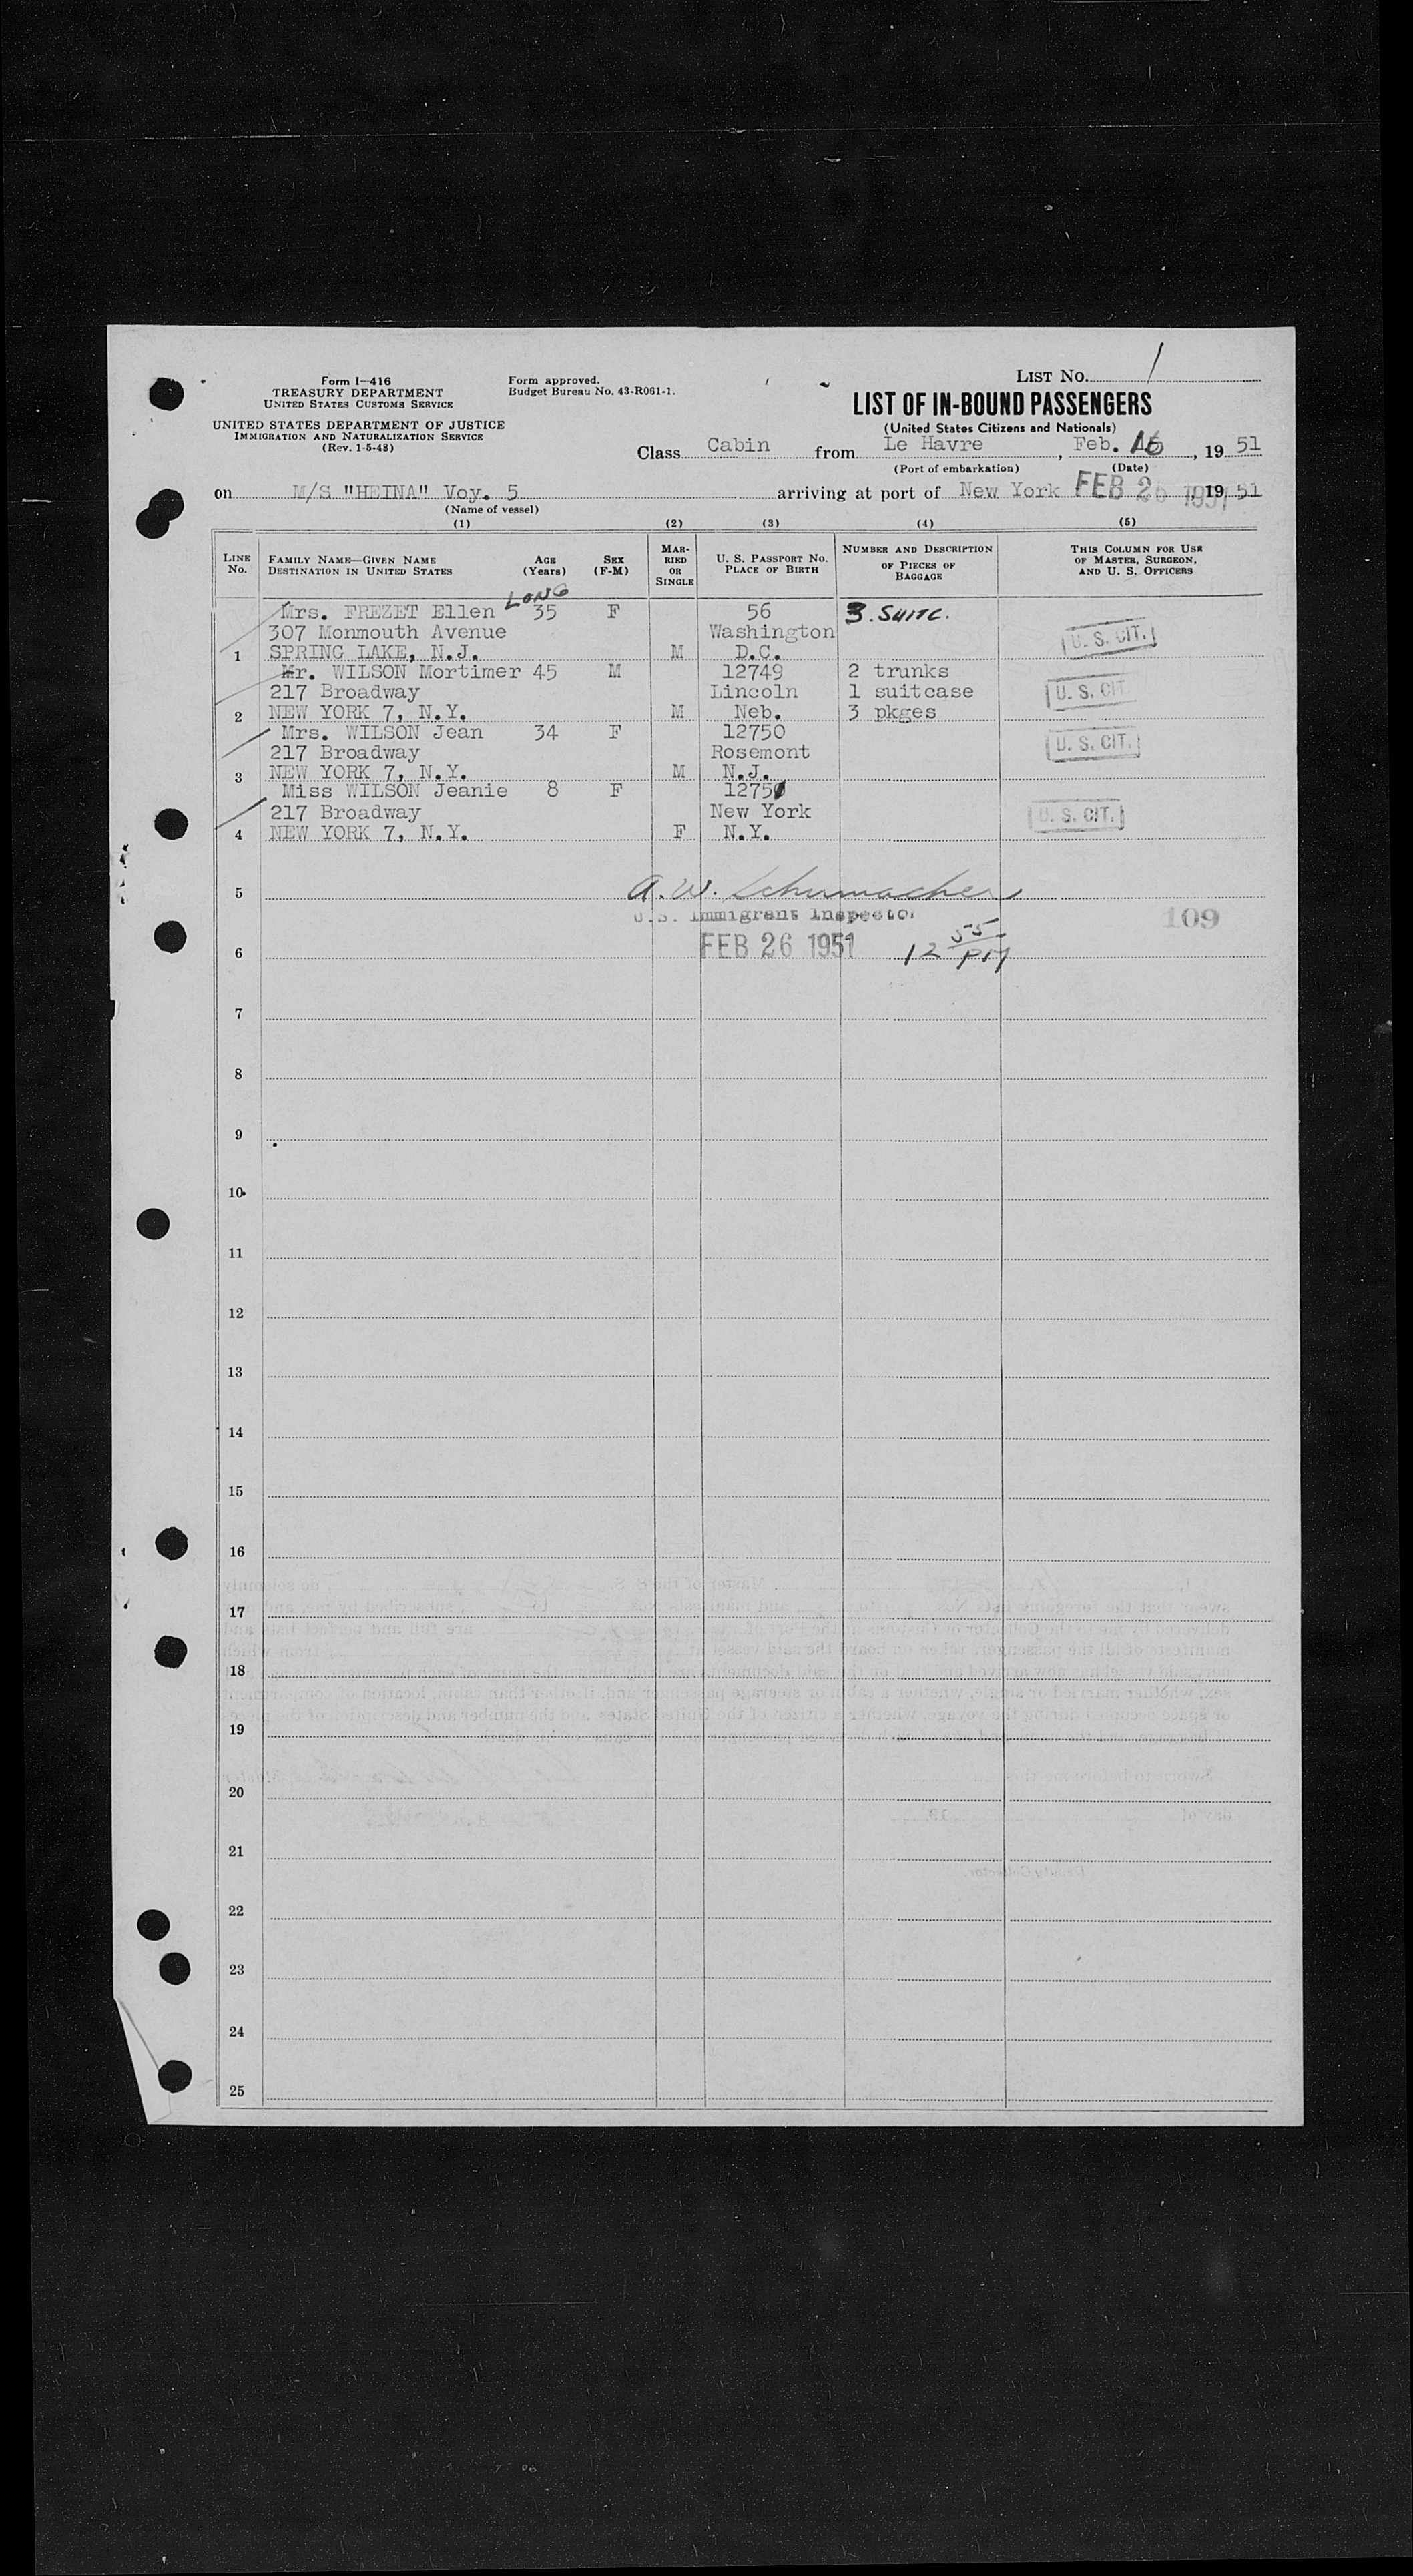 LIST NO. 1
Form I—416
TREASURY DEPARTMENT
UNITED STATES CUSTOMS SERVICE
Form approved.
Budget Bureau No. 43-R061-1.
UNITED STATES DEPARTMENT OF JUSTICE
IMMIGRATION AND NATURALIZATION SERVICE
(Rev. 1-5-48)
LIST OF IN-BOUND PASSENGERS
(United States Citizens and Nationals)
Class Cabin from Le Havre, Feb. 16, 19 51
(Port of embarkation) (Date)
on M/S "HEINA" Voy. 5 arriving at port of New York FEB 26 1951, 19 51
(Name of vessel)
(1) (2) (3) (4) (5)
LINE NO.
FAMILY NAME—GIVEN NAME
DESTINATION IN UNITED STATES
AGE (Years)
SEX (F-M)
MARRIED OR SINGLE
U. S. PASSPORT NO.
PLACE OF BIRTH
NUMBER AND DESCRIPTION OF PIECES OF BAGGAGE
THIS COLUMN FOR USE OF MASTER, SURGEON, AND U. S. OFFICERS
LONG
Mrs. FREZET Ellen 35 F 56 3. SUITC.
307 Monmouth Avenue Washington U. S. CIT.
1 SPRING LAKE, N.J. M D.C.
Mr. WILSON Mortimer 45 M 12749 2 trunks
217 Broadway Lincoln 1 suitcase U. S. CIT.
2 NEW YORK 7, N.Y. M Neb. 3 pkges
Mrs. WILSON Jean 34 F 12750
217 Broadway Rosemont U. S. CIT.
3 NEW YORK 7, N.Y. M N.J.
Miss WILSON Jeanie 8 F 12751
217 Broadway New York U. S. CIT.
4 NEW YORK 7, N.Y. F N.Y.
5 A. W. Schumacher
U.S. Immigrant Inspector 109
6 FEB 26 1951 12 55 PM
7
8
9
10
11
12
13
14
15
16
17
18
19
20
21
22
23
24
25